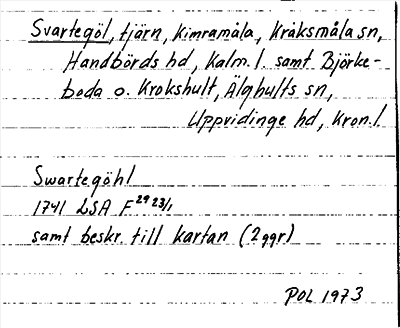 Svartegöl, tjärn, Kimramåla, Kråksmåla sn,
Handbörds hd, Kalm. l. samt Björke-
boda o. Krokshult, Älghults sn,
Uppvidinge hd, Kron. l
Swartegöhl
1741 LSA F 29 23/1
samt beskr. till kartan (2 ggr)
POL 1973